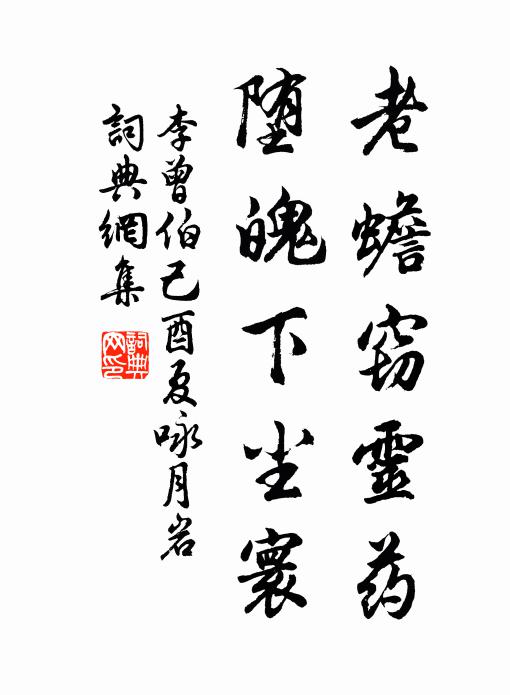 老蟾窃靈药
堕魄下尘寰
李曾伯己酉夏咏月岩
詞典網集
詞典網印